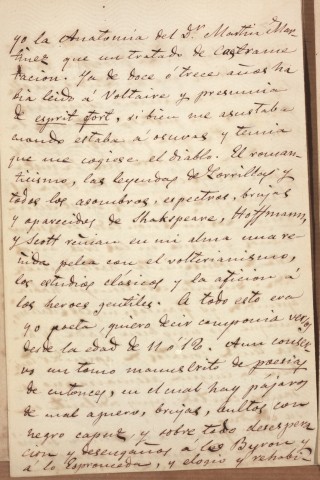 yo la Anatomia del Dr. Martin Mar-
tinez que un tratado de Castrame
tacion. Ya de doce ó trece años ha
bia leido á Voltaire y presumia
de esprit fort, si bien me asustaba
cuando estaba á oscuras y temia
que me cogiese el diablo. El roman-
ticismo, las leyendas de Zorrilla y
todos los asombros, espectros, brujas
y aparecidos de Shakspeare, Hoffmann,
y Scott reñian en mi alma una re
ñida pelea con el volterianismo,
los estudios clásicos y la aficion á
los heroes gentiles. A todo esto era
yo poeta, quiero decir componia versos
desde la edad de 11 ó 12. Aun conser
vo un tomo manuscrito de poesias
de entonces, en el cual hay pájaros
de mal aguero, brujas, bultos con
negro capuz y sobre todo desespera
cion y desengaños á lo Byron y
á lo Espronceda, y elogio y rehabi